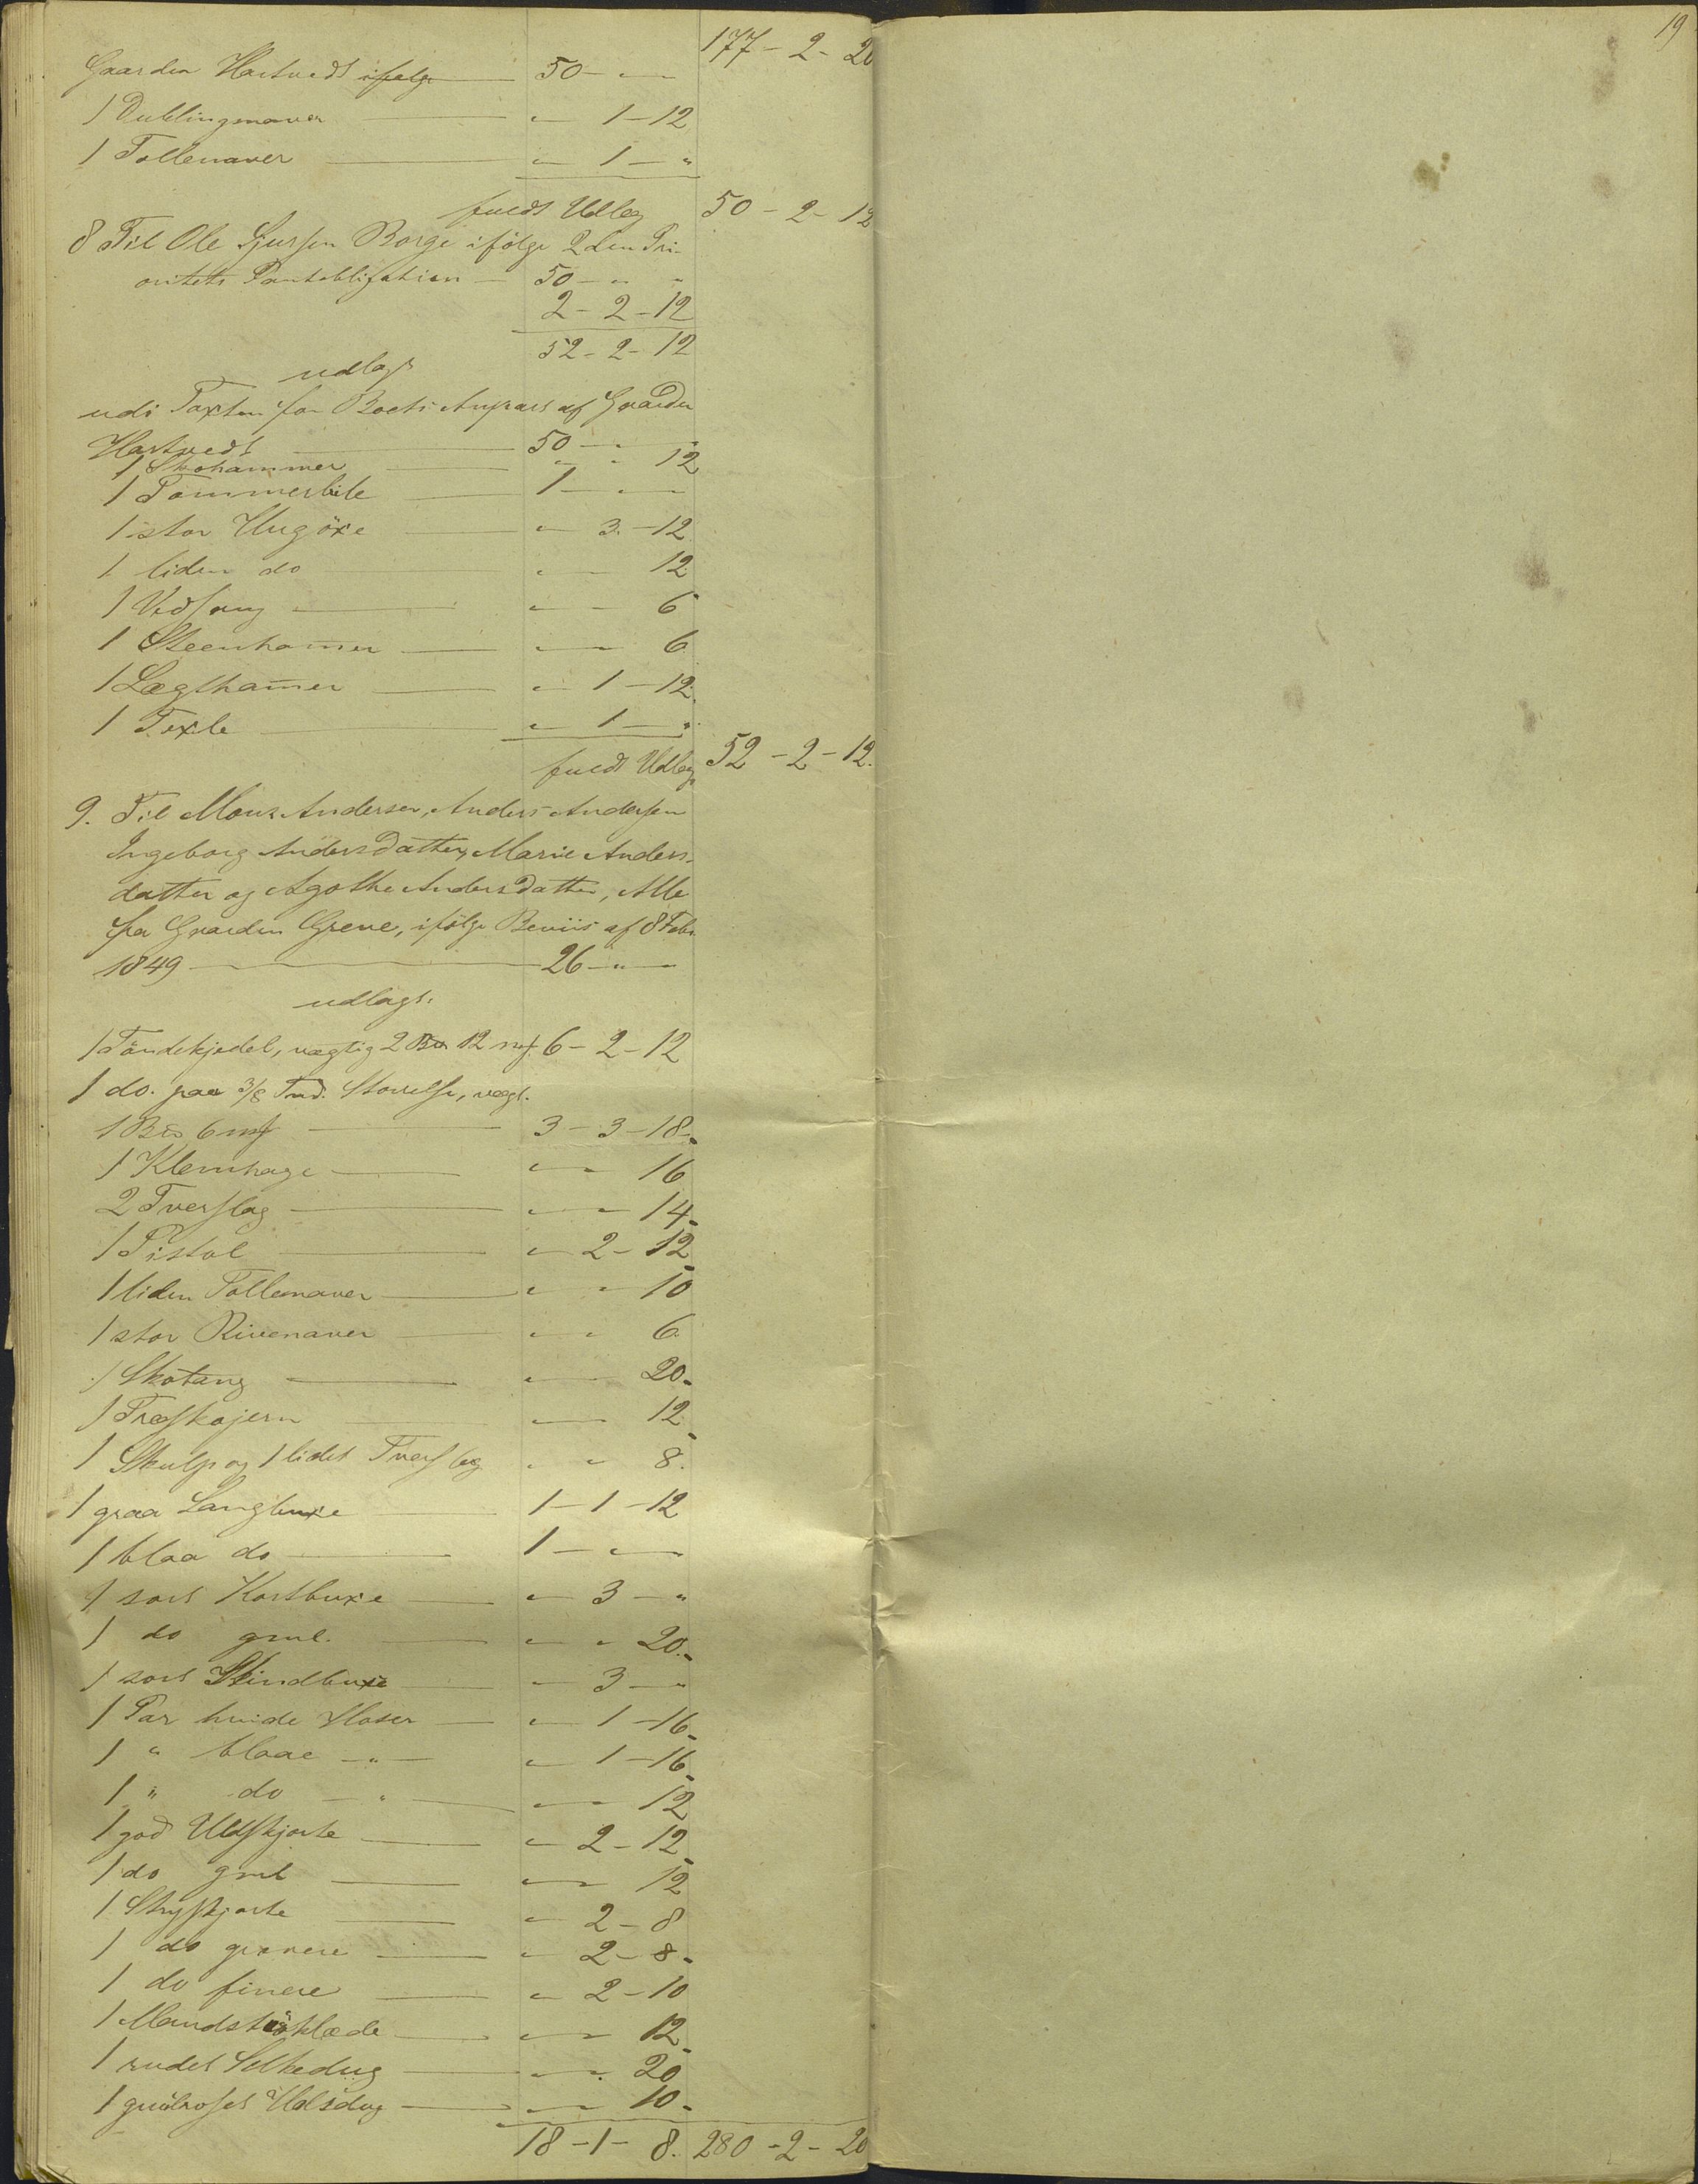 19
177 - 2 - 20
Gaarden Hartvedt ifølge 50 - " - "
1 Dublingsnaver " 1 - 12
1 Tollenaver " 1 - "
fuldt Udlæg 50 - 2 - 12
8 Til Ole Sjursen Borge ifölge 2den Pri-
oritets Pantobligation - 50 - " - "
2 - 2 - 12
52 - 2 - 12
udlagt
udi Taxten for Boets Anpart af Gaarden
Hartvedt 50 - " - "
1 Skohammer " - " 12
1 Tømmerbile 1 - " - "
1 stor Hugöxe " 3 - 12
1 liden do " - 12
1 Vedsaug " - 6
1 Steenham̅er " - 6
1 Lægtham̅er " 1 - 12
1 Texle " 1 - "
fuldt Udlæg 52 - 2 - 12.
9. Til Mons Andersen, Anders Andersen
Ingeborg Andersdatter, Marie Anders-
datter og Agothe Andersdatter, Alle
fra Gaarden Grene, ifølge Beviis af 8 Febr.
1849 26 - " - "
udlagt:
1 Töndekjedel, vægtig 2 Bis 12 mk 6 - 2 - 12
1 do. paa 3/8 Tnd. Størrelse, vægt.
1 Bis 6 mk 3 - 3 - 18
1 Klemhage " - 16
2 Tverslag " - 14
1 Pistol " 2 - 12
1 liden Tollenaver " - 10
1 stor Rivenaver " " 6
1 Skotang " - 20
1 Træskojern " - 12
1 Skulp og 1 lidet Tverslag " " 8.
1 graa Langbuxe 1 - 1 - 12
1 blaa do 1 - " - "
1 sort Kortbuxe " 3 - "
1 do gml. " " 20
1 sort Skindbuxe " 3 - "
1 Par hvide Hoser " 1 - 16
1 " blaae - " - " 1 - 16
1 " do - " - " - 12
1 god Uldskjorte " 2 - 12
1 do gml " - 12
1 Stryskjorte " 2 - 8
1 do grovere " 2 - 8
1 do finere " 2 - 10
1 Mandstørklæde " - 12
1 rudet Silkedug " - 20
1 Halsdug " - 10
18 - 1 - 8. 280 - 2 - 20